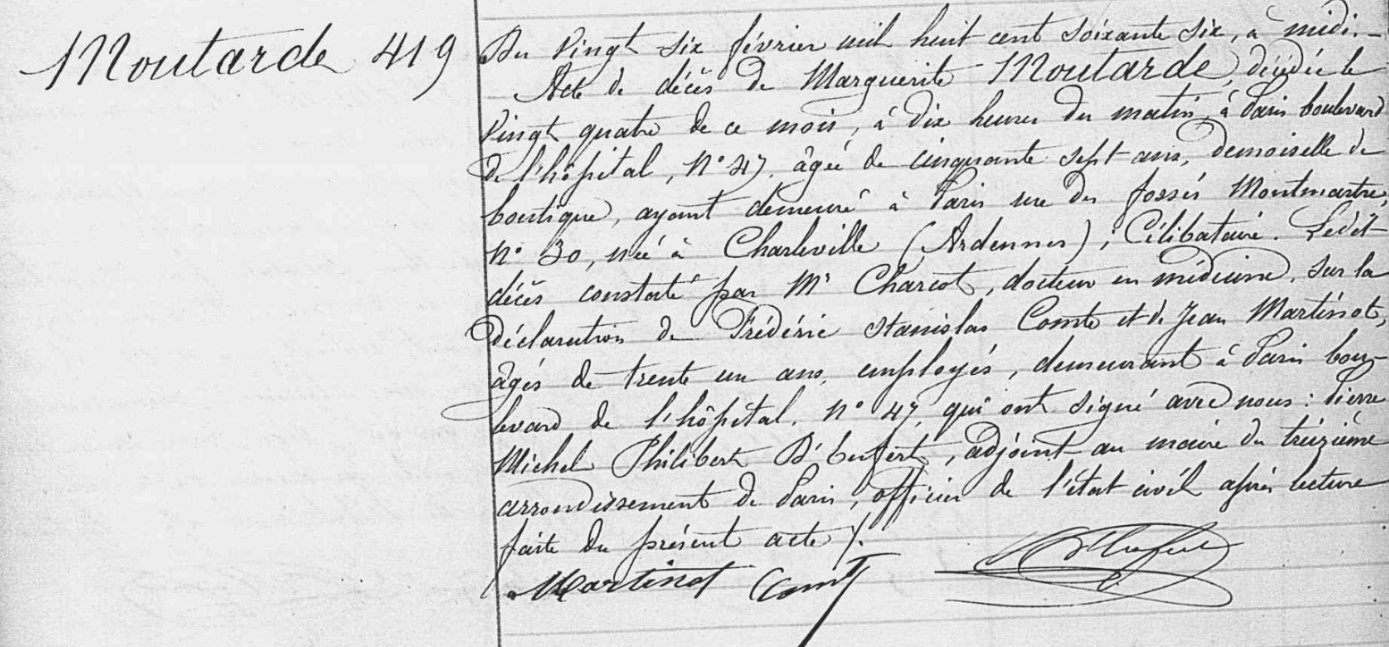 Moutarde 419
Du vingt six février mil huit cent soixante six, à midi. -
Acte de décès de Marguerite Moutarde, décédée le
vingt quatre de ce mois, à dix heures du matin, à Paris boulevard
de l'hôpital, N° 47, âgée de cinquante sept ans, demoiselle de
boutique, ayant demeuré à Paris rue des fossés Montmartre,
N° 30, née à Charleville (Ardennes), Célibataire. Ledit
décès constaté par Mr Charcot, docteur en médecine, sur la
déclaration de Frédéric Stanislas Comte et de Jean Martinot,
âgés de trente un ans, employés, demeurant à Paris bou-
levard de l'hôpital, N° 47, qui ont signé avec nous : Pierre
Michel Philibert, adjoint au maire du treizième
arrondissement de Paris, officier de l'état civil après lecture
faite du présent acte /.
Martinot Comte